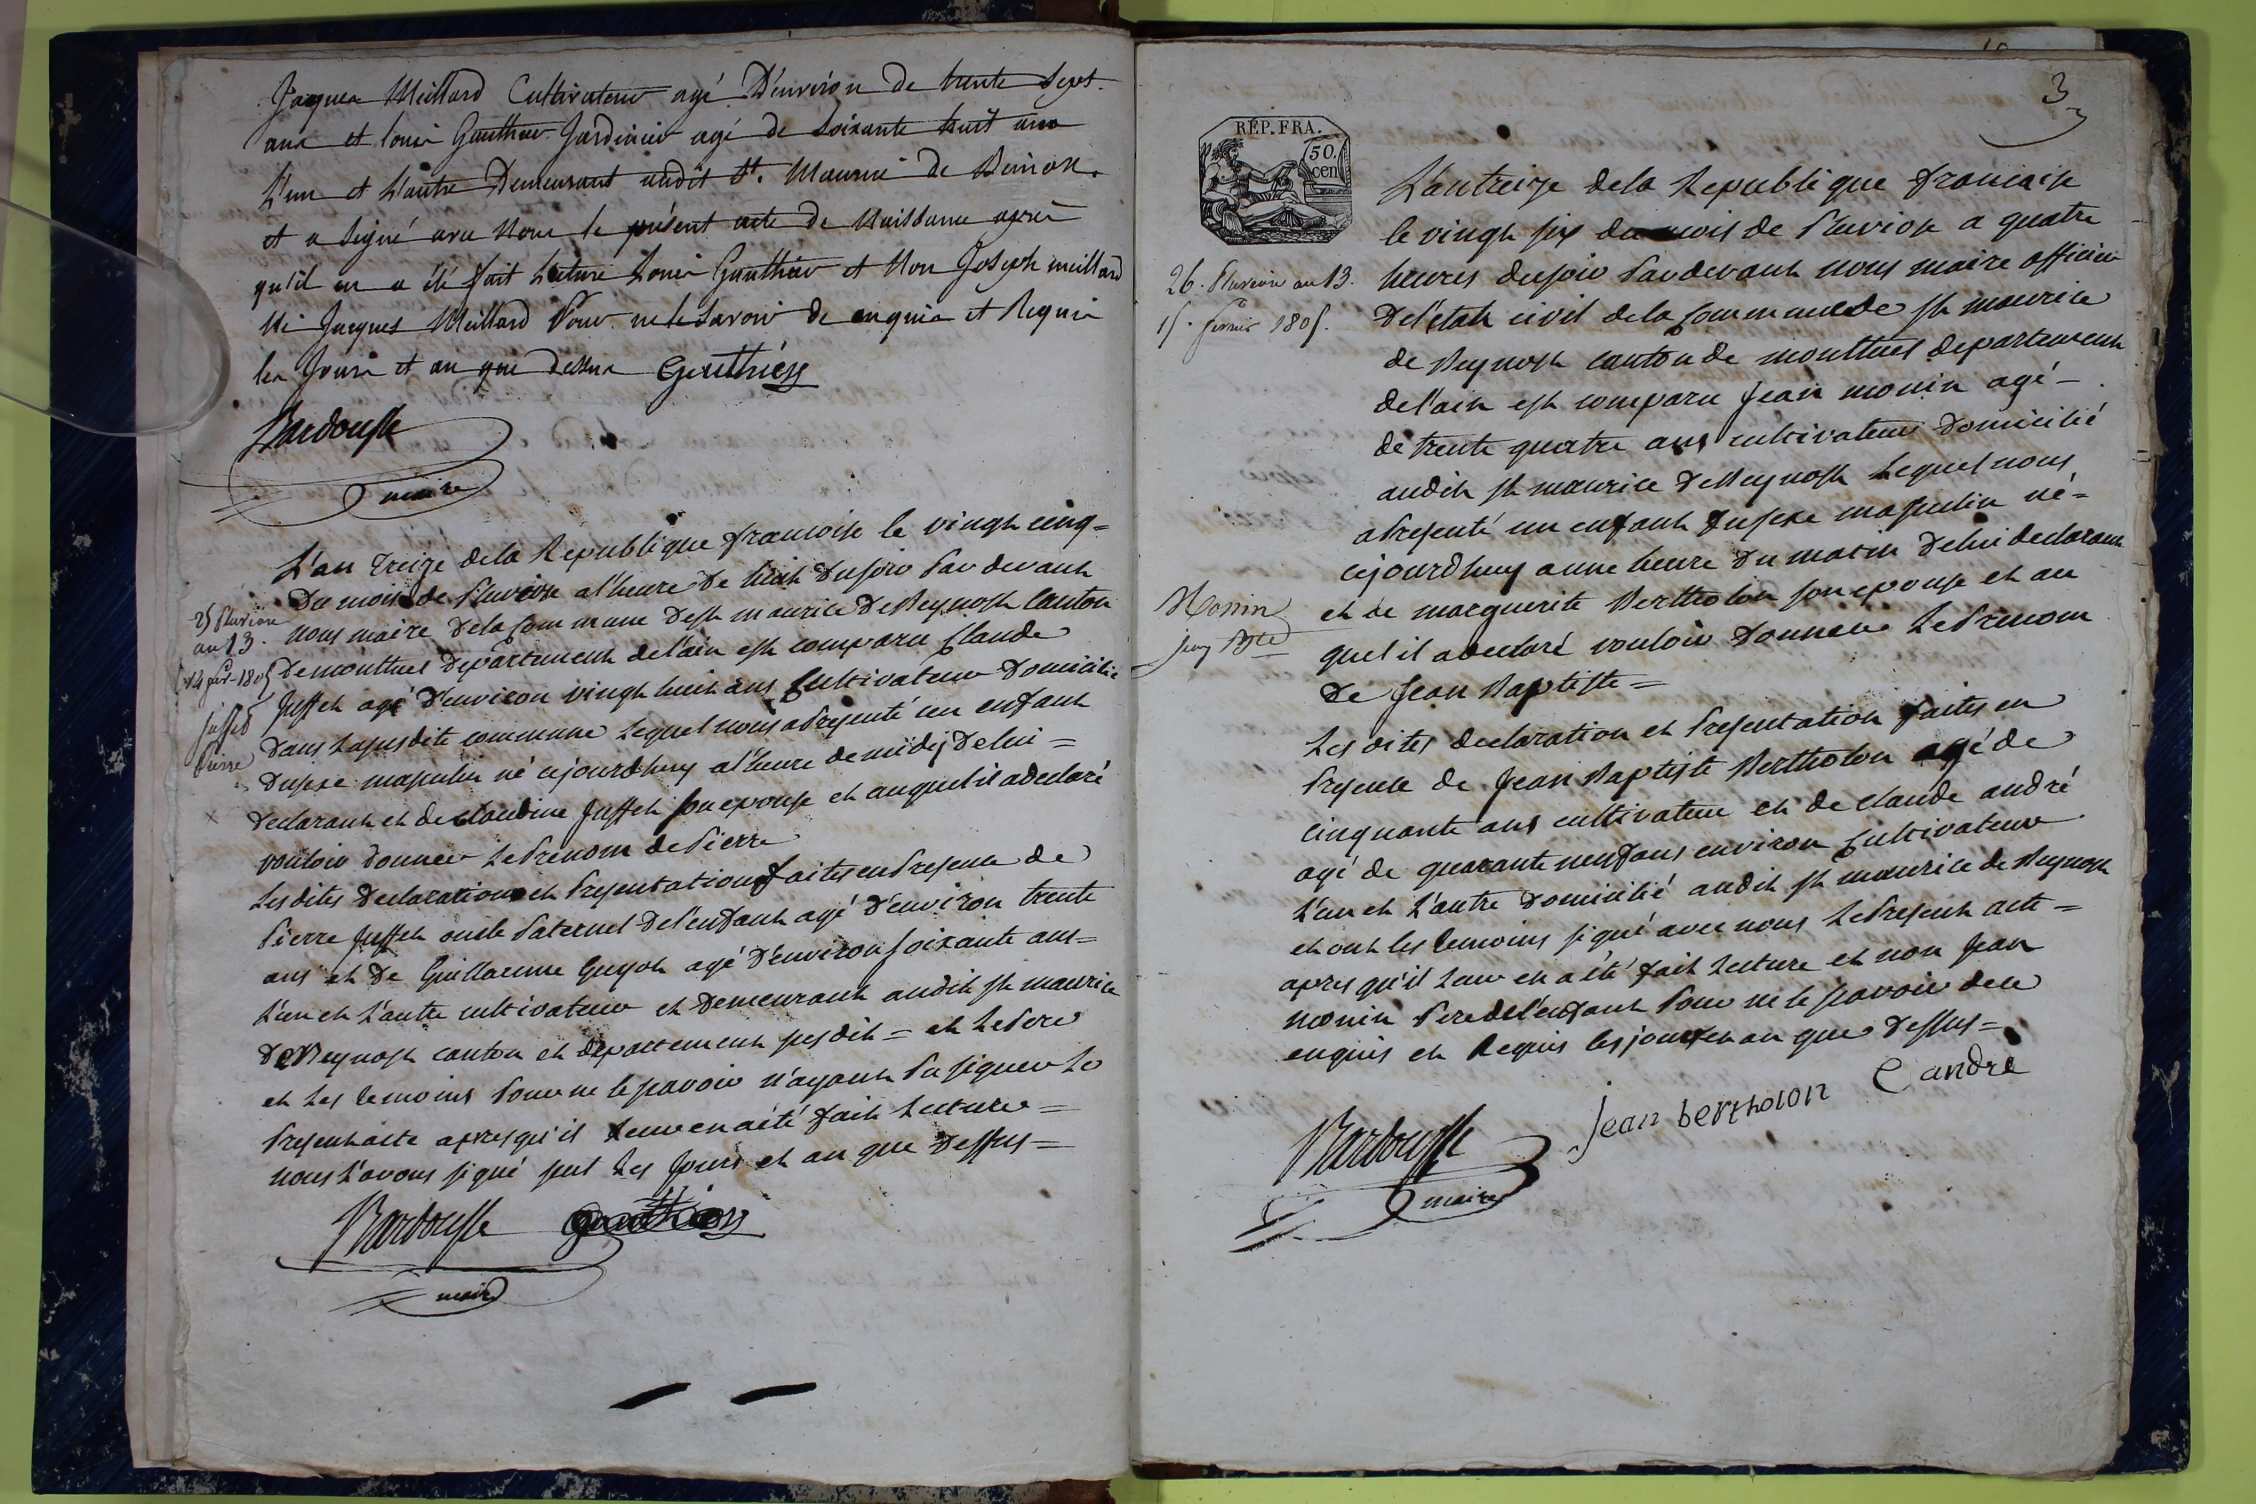 Jacques Meillard Cultivateur agé D'environ de trente Sept
ans et louis Gauthier Jardinier agé de Soixante huit ans
L'un et L'autre Demeurant audit St. Maurice de Beinost.
et a Signé avec Nous le présent acte de Naissance après
qu'il en a été fait Lecture Louis Gauthier et Non Joseph meillard
Ni Jacques Meillard Pour ne le Savoir de enquis et Requis
les Jours et an que dessus Gauthier
Bardousse
maire
L'an treize de la Republique francoise le vingt cinq =
Du mois de Pluviose a l'heure De huit Dusoir Par devant
nous maire Dela Commune Dest maurice De Beynost Canton
De montluel Departement de l'ain est comparu Claude
Juffet agé D'environ vingt huit ans Cultivateur Domicilié
Dans Lasusdite commune Lequel nous aPresenté un enfant
Dusexe masculin né cejourdhuy a l'heure de midij Delui =
Declarant et de claudine Juffet son epouse et auquel il adeclaré
vouloir donner LePrenom de Pierre
Les dites Declaration et Presentation faites en Presence de
Pierre Juffet oncle Paternel De l'enfant agé D'environ trente
ans et De Guillaume Guyot agé D'environ soixante ans =
L'un et L'autre cultivateur et Demeurant audit st maurice
De Beynost canton et departement susdit = et LePere
et Les temoins Pour ne le scavoir n'ayant Pu signer Le
Present acte apres qu'il Leur en a été fait Lecture =
nous L'avons signé seul Les Jours et an que Dessus =
25 Pluviose
an 13.
14 fév. 1805
Juffet
Pierre
x
Bardousse
maire
3
RÉP. FRA.
50.
cen.
L'an treize dela Republique francaise
le vingt six du mois de Pluviose a quatre
heures dusoir Pardevant nous maire officier
De l'etat civil dela Commune de st maurice
de Beynost canton de montluel departement
de l'ain est comparu Jean monin agé =
de trente quatre ans cultivateur Domicilié
audit st maurice De Beynost Lequel nous
aPresenté un enfant Dusexe masculin né =
cejourdhuy a une heure Du matin Delui declarant
et de marguerite Bertholon son epouse et au
quel il adeclaré vouloir Donner LePrenom
De Jean Baptiste =
Les dites declaration et Presentation faites en
Presence de Jean Baptiste Bertholon agé de
cinquante ans cultivateur et de claude andré
agé de quarante neuf ans environ Cultivateur
L'un et L'autre Domicilié audit st maurice de Beynost
et ont les temoins signé avec nous LePresent acte =
apres qu'il Leur en a été fait Lecture et non Jean
monin Pere de l'enfant Pour ne le scavoir de ce
enquis et Requis les jours et an que Dessus =
26. Pluviose an 13.
15. fevrier 1805.
Monin
Jean Bte
jean bertholon C andré
Bardousse
maire